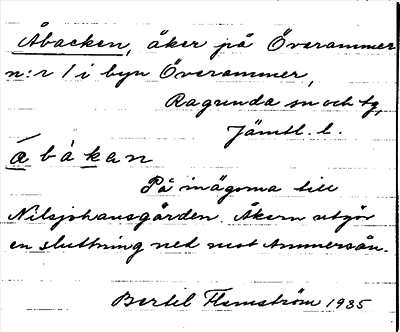 Åbacken, åker på Överammer
n:r 1 i byn Överammer,
Ragunda sn och tg,
Jämtl. l.
å b à k a n
På inägorna till
Nilsjohansgården. Åkern utgör
en sluttning ned mot Ammerån.
Bertil Flemström 1935